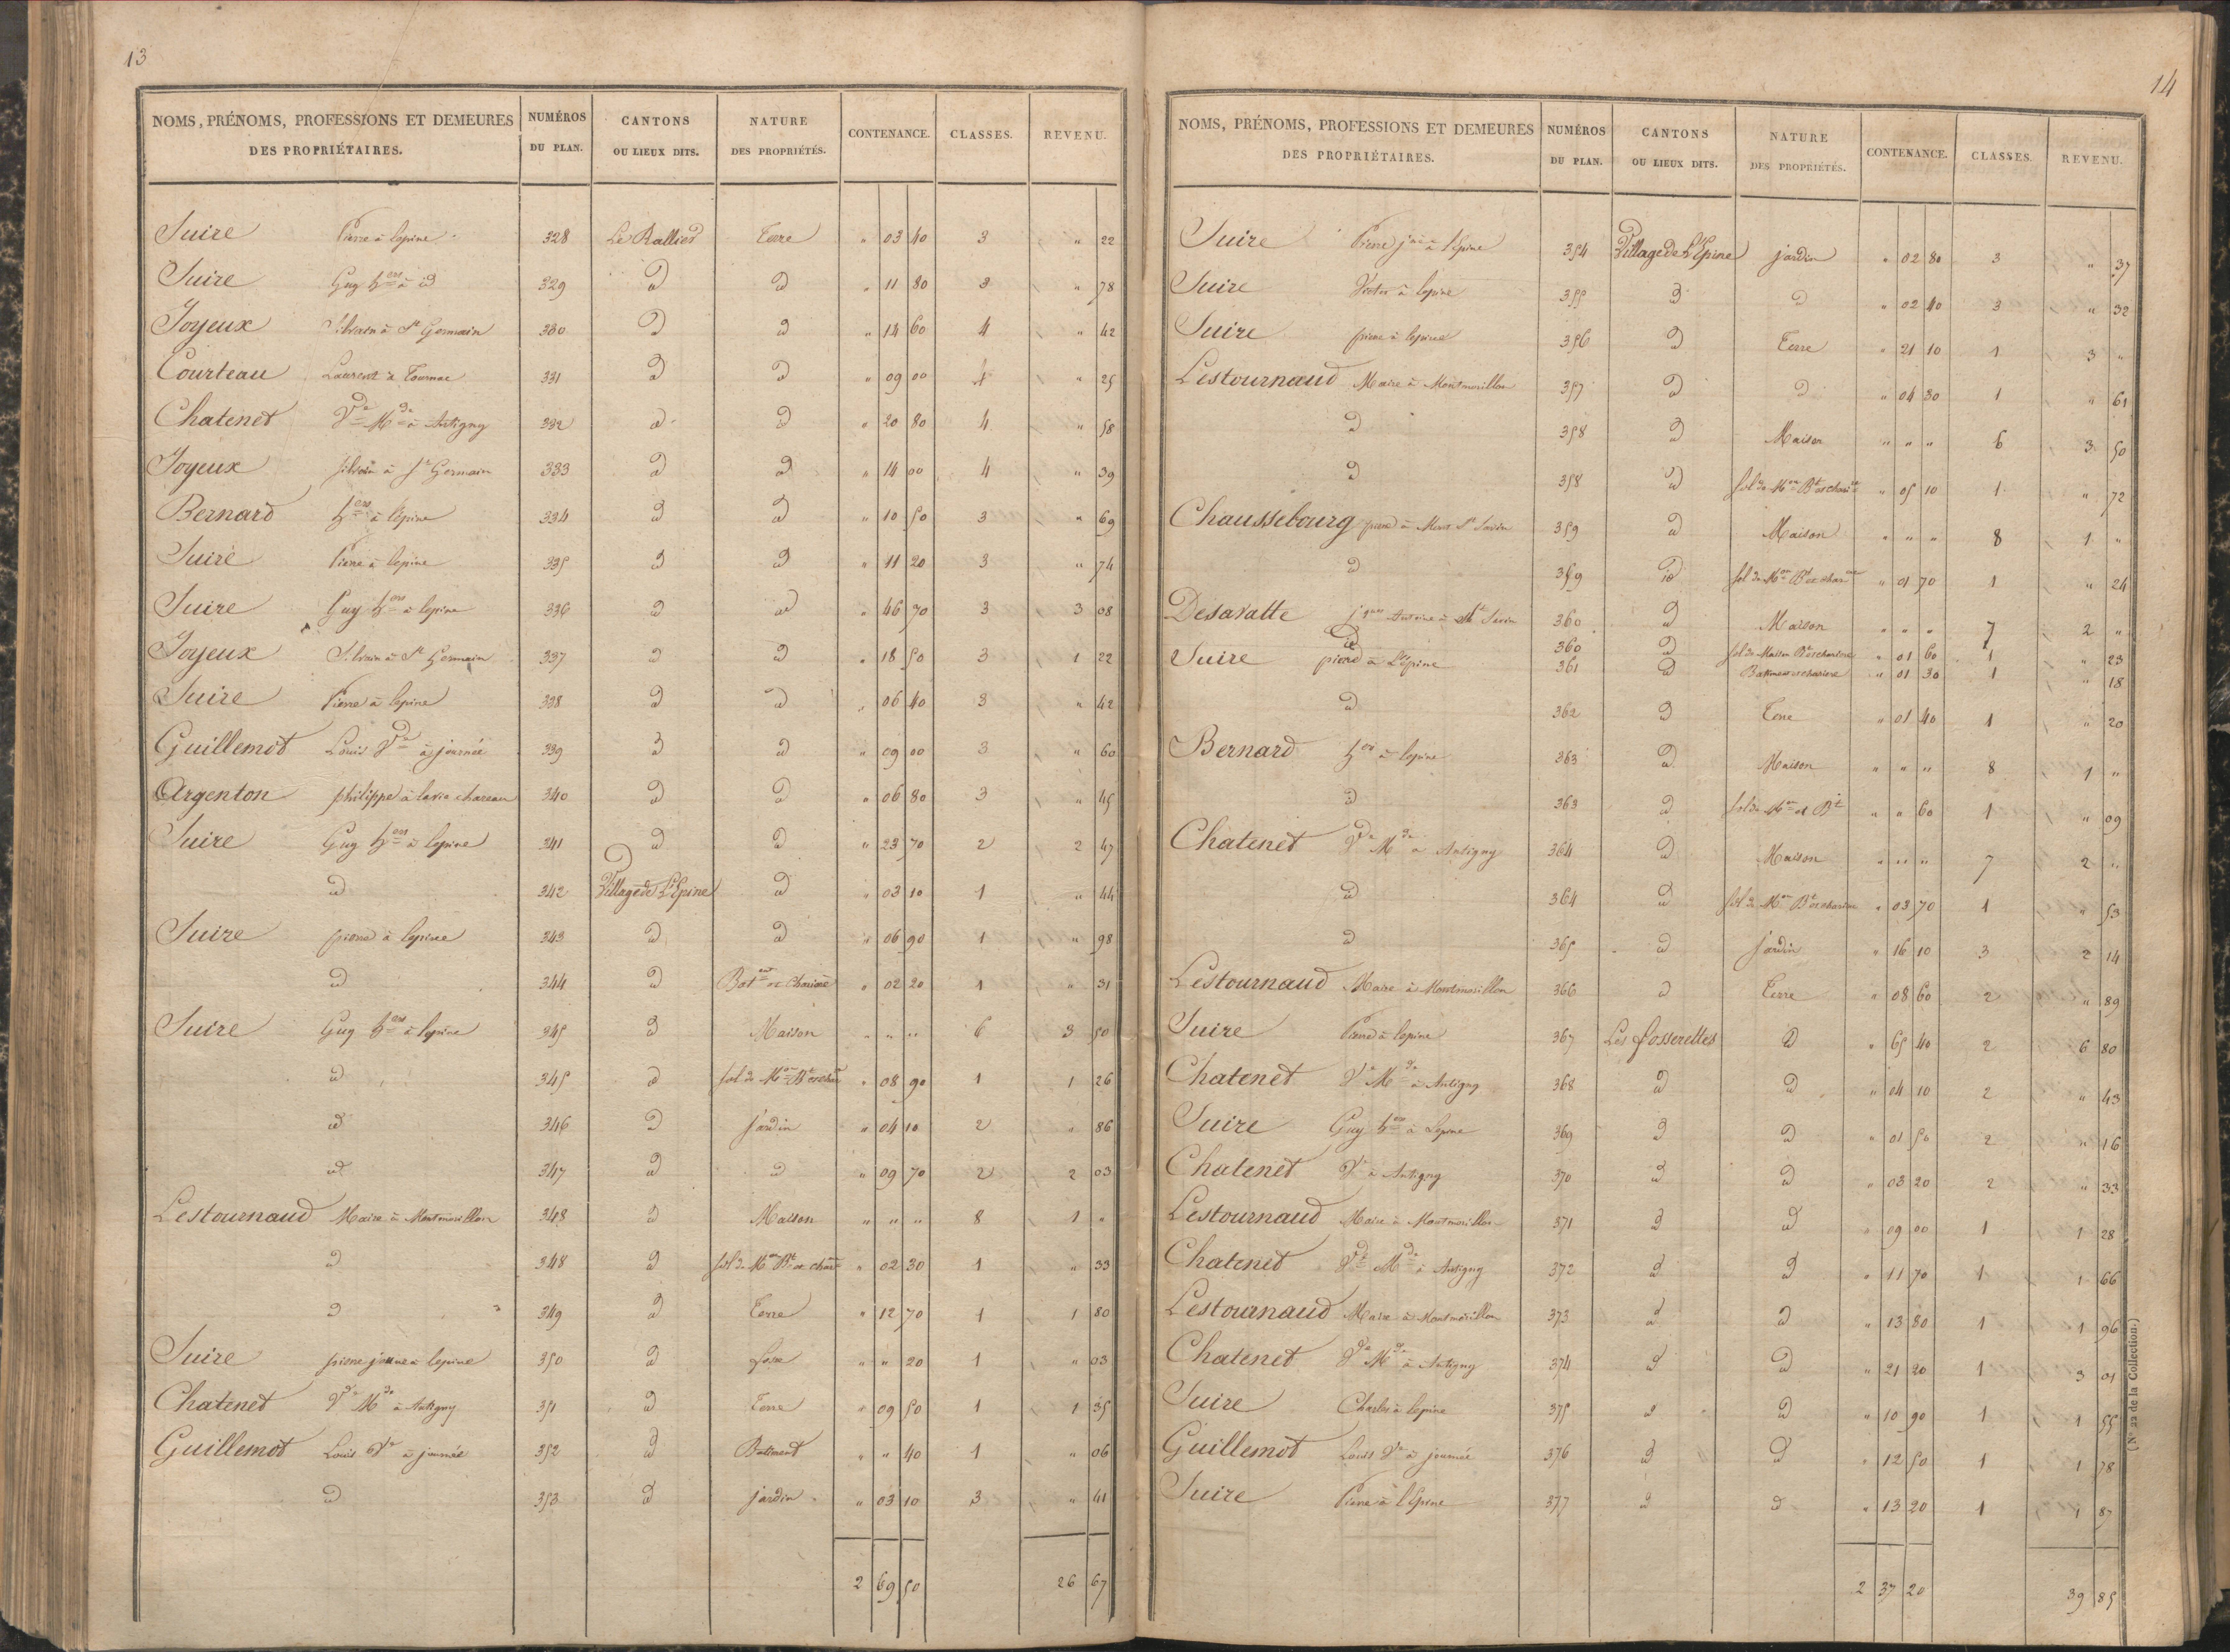 13
NOMS, PRÉNOMS, PROFESSIONS ET DEMEURES DES PROPRIÉTAIRES. NUMÉROS DU PLAN. CANTONS OU LIEUX DITS. NATURE DES PROPRIÉTÉS. CONTENANCE. CLASSES. REVENU.
Suire Pierre à lepine 328 Les Rallies Terre " 03 40 3 " 22
Suire Guy hers à id 329 id id " 11 80 3 " 78
Joyeux Silvain à St Germain 330 id id " 14 60 4 " 42
Courteau Laurent à Tournac 331 id id " 09 00 4 " 25
Chatenet Ve Mde à Antigny 332 id id " 20 80 4 " 58
Joyeux Silvain à St Germain 333 id id " 14 00 4 " 39
Bernard hers à lépine 334 id id " 10 50 3 " 69
Suire Pierre à lepine 335 id id " 11 20 3 " 74
Suire Guy hers à lepine 336 id id " 46 70 3 3 08
Joyeux Silvain à St Germain 337 id id " 18 50 3 1 22
Suire Pierre à lepine 338 id id " 06 40 3 " 42
Guillemot Louis Ve à journée 339 id id " 09 00 3 " 60
Argenton philippe à 340 id id " 06 80 3 " 45
Suire Guy hers à lepine 341 id id " 23 70 2 2 47
id 342 Village de L'Epine id " 03 10 1 " 44
Suire pierre à lepine 343 id id " 06 90 1 " 98
id 344 id Batent et Chariere " 02 20 1 " 31
Suire Guy hers à lepine 345 id Maison " " " 6 3 50
id 345 id sol de Mon Bt et char " 08 90 1 1 26
id 346 id jardin " 04 10 2 " 86
id 347 id id " 09 70 2 2 03
Lestournaud Maire à Montmorillon 348 id Maison " " " 8 1 "
id 348 id sol de Mon Bt et char " 02 30 1 " 33
id 349 id Terre " 12 70 1 1 80
Suire pierre jeune à lepine 350 id fosse " " 20 1 " 03
Chatenet Ve Mde à Antigny 351 id Terre " 09 50 1 1 35
Guillemot Louis Ve à journée 352 id Batiment " " 40 1 " 06
id 353 id jardin " 03 10 3 " 41
2 69 50 26 67
14
NOMS, PRÉNOMS, PROFESSIONS ET DEMEURES DES PROPRIÉTAIRES. NUMÉROS DU PLAN. CANTONS OU LIEUX DITS. NATURE DES PROPRIÉTÉS. CONTENANCE. CLASSES. REVENU.
Suire Pierre jne à l'Epine 354 Village de L'Epine jardin " 02 80 3 " 37
Suire Victor à lepine 355 id id " 02 40 3 " 32
Suire pierre à lepine 356 id Terre " 21 10 1 3 "
Lestournaud Maire à Montmorillon 357 id id " 04 30 1 " 61
id 358 id Maison " " " 6 3 50
id 358 id sol de Mon Bt et chariere " 05 10 1 " 72
Chaussebourg pierre à St Savin 359 id Maison " " " 8 1 "
id 359 id sol de Mon Bt et char " 01 70 1 " 24
Desavatte Antoine à St Savin 360 id Maison " " " 7 2 "
id 360 id sol de Maison Bt et chariere " 01 60 1 " 23
Suire pierre à L'épine 361 id Batiment et chariere " 01 30 1 " 18
id 362 id Terre " 01 40 1 " 20
Bernard hers à lepine 363 id Maison " " " 8 1 "
id 363 id sol de Mon et Bt " " 60 1 " 09
Chatenet Ve Mde à Antigny 364 id Maison " " " 7 2 "
id 364 id sol de Mon Bt et chariere " 03 70 1 " 53
id 365 id jardin " 16 10 3 2 14
Lestournaud Maire à Montmorillon 366 id Terre " 08 60 2 " 89
Suire Pierre à lepine 367 Les fosserettes id " 65 40 2 6 80
Chatenet Ve Mde à Antigny 368 id id " 04 10 2 " 43
Suire Guy hers à Lepine 369 id id " 01 50 2 " 16
Chatenet Ve à Antigny 370 id id " 03 20 2 " 33
Lestournaud Maire à Montmorillon 371 id id " 09 00 1 1 28
Chatenet Ve Mde à Antigny 372 id id " 11 70 1 1 66
Lestournaud Maire à Montmorillon 373 id id " 13 80 1 1 96
Chatenet Ve Mde à Antigny 374 id id " 21 20 1 3 01
Suire Charles à lepine 375 id id " 10 90 1 1 55
Guillemot Louis Ve à journée 376 id id " 12 50 1 1 78
Suire Pierre à l'Epine 377 id id " 13 20 1 1 87
2 37 20 39 85
(N° 22 de la Collection.)